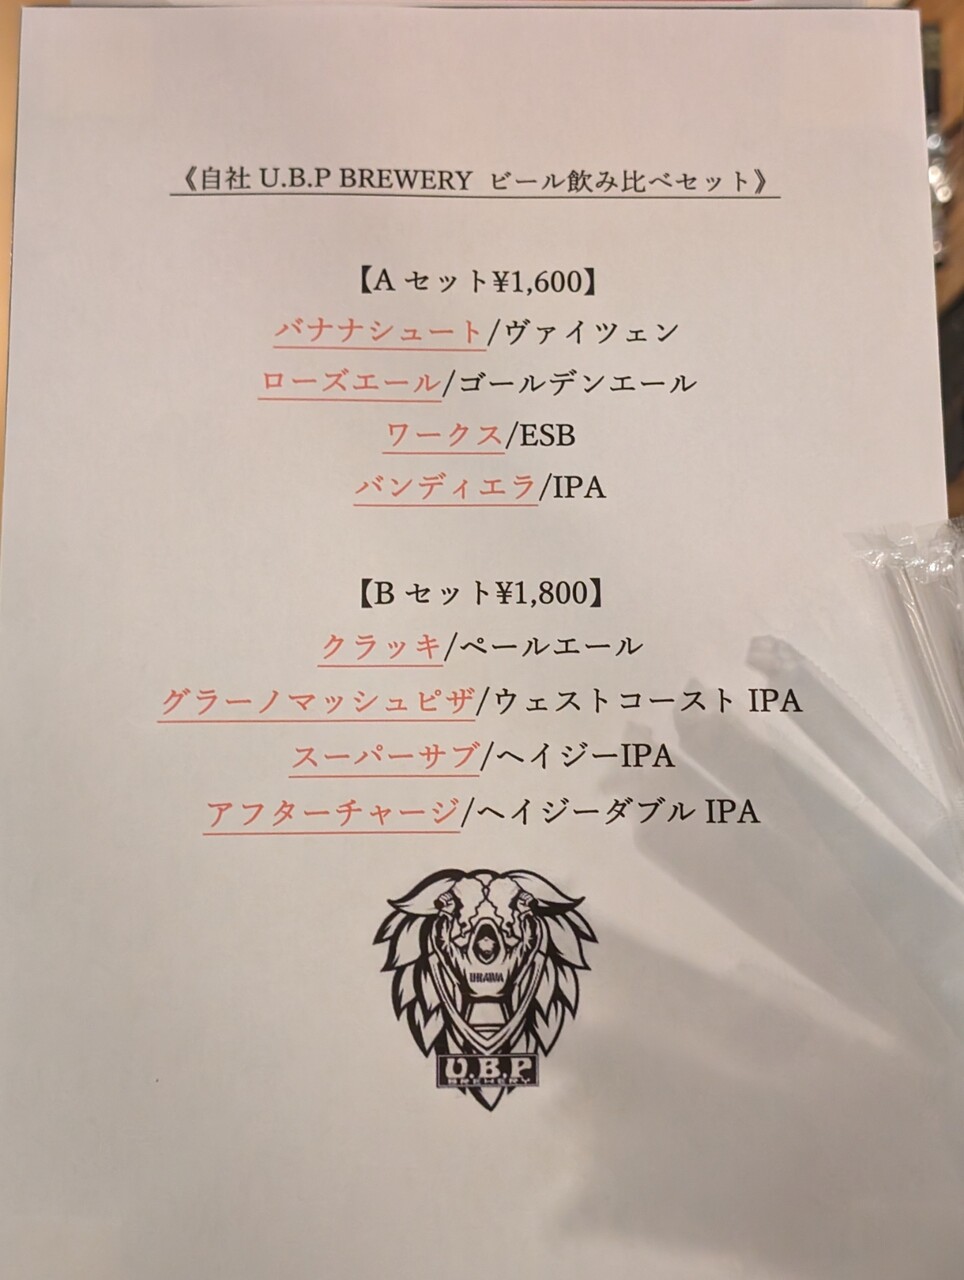 《自社 U.B.P BREWERY ビール飲み比べセット》
【A セット¥1,600】
バナナシュート/ヴァイツェン
ローズエール/ゴールデンエール
ワークス/ESB
バンディエラ/IPA
【B セット¥1,800】
クラッキ/ペールエール
グラーノマッシュピザ/ウェストコースト IPA
スーパーサブ/ヘイジーIPA
アフターチャージ/ヘイジーダブル IPA
URAWA
U.B.P
BREWERY